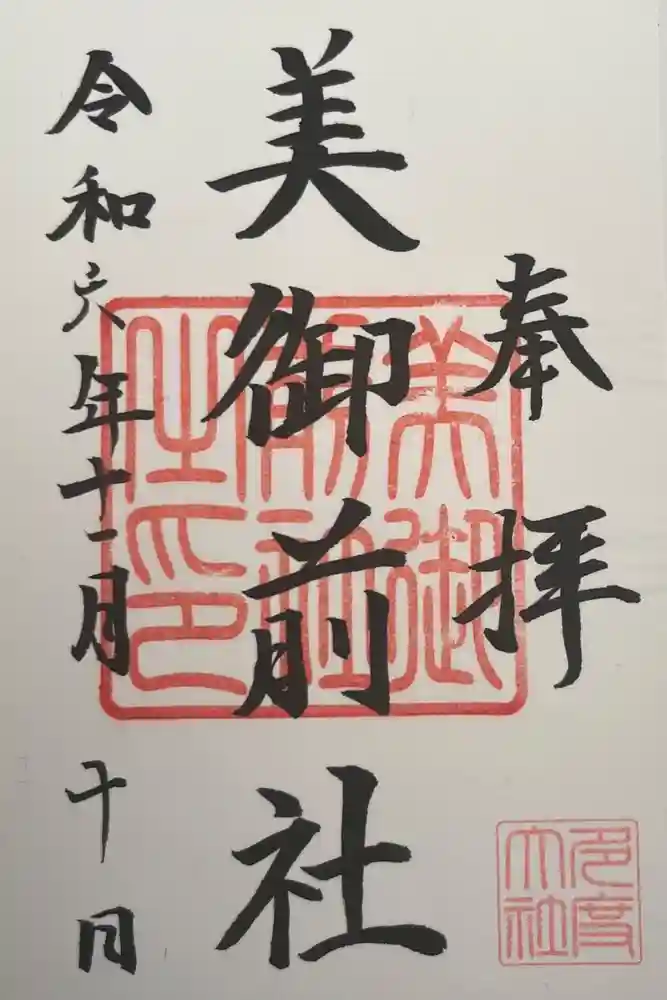 奉拝
美御前社
令和六年十一月十日
美御前社之印
多度大社